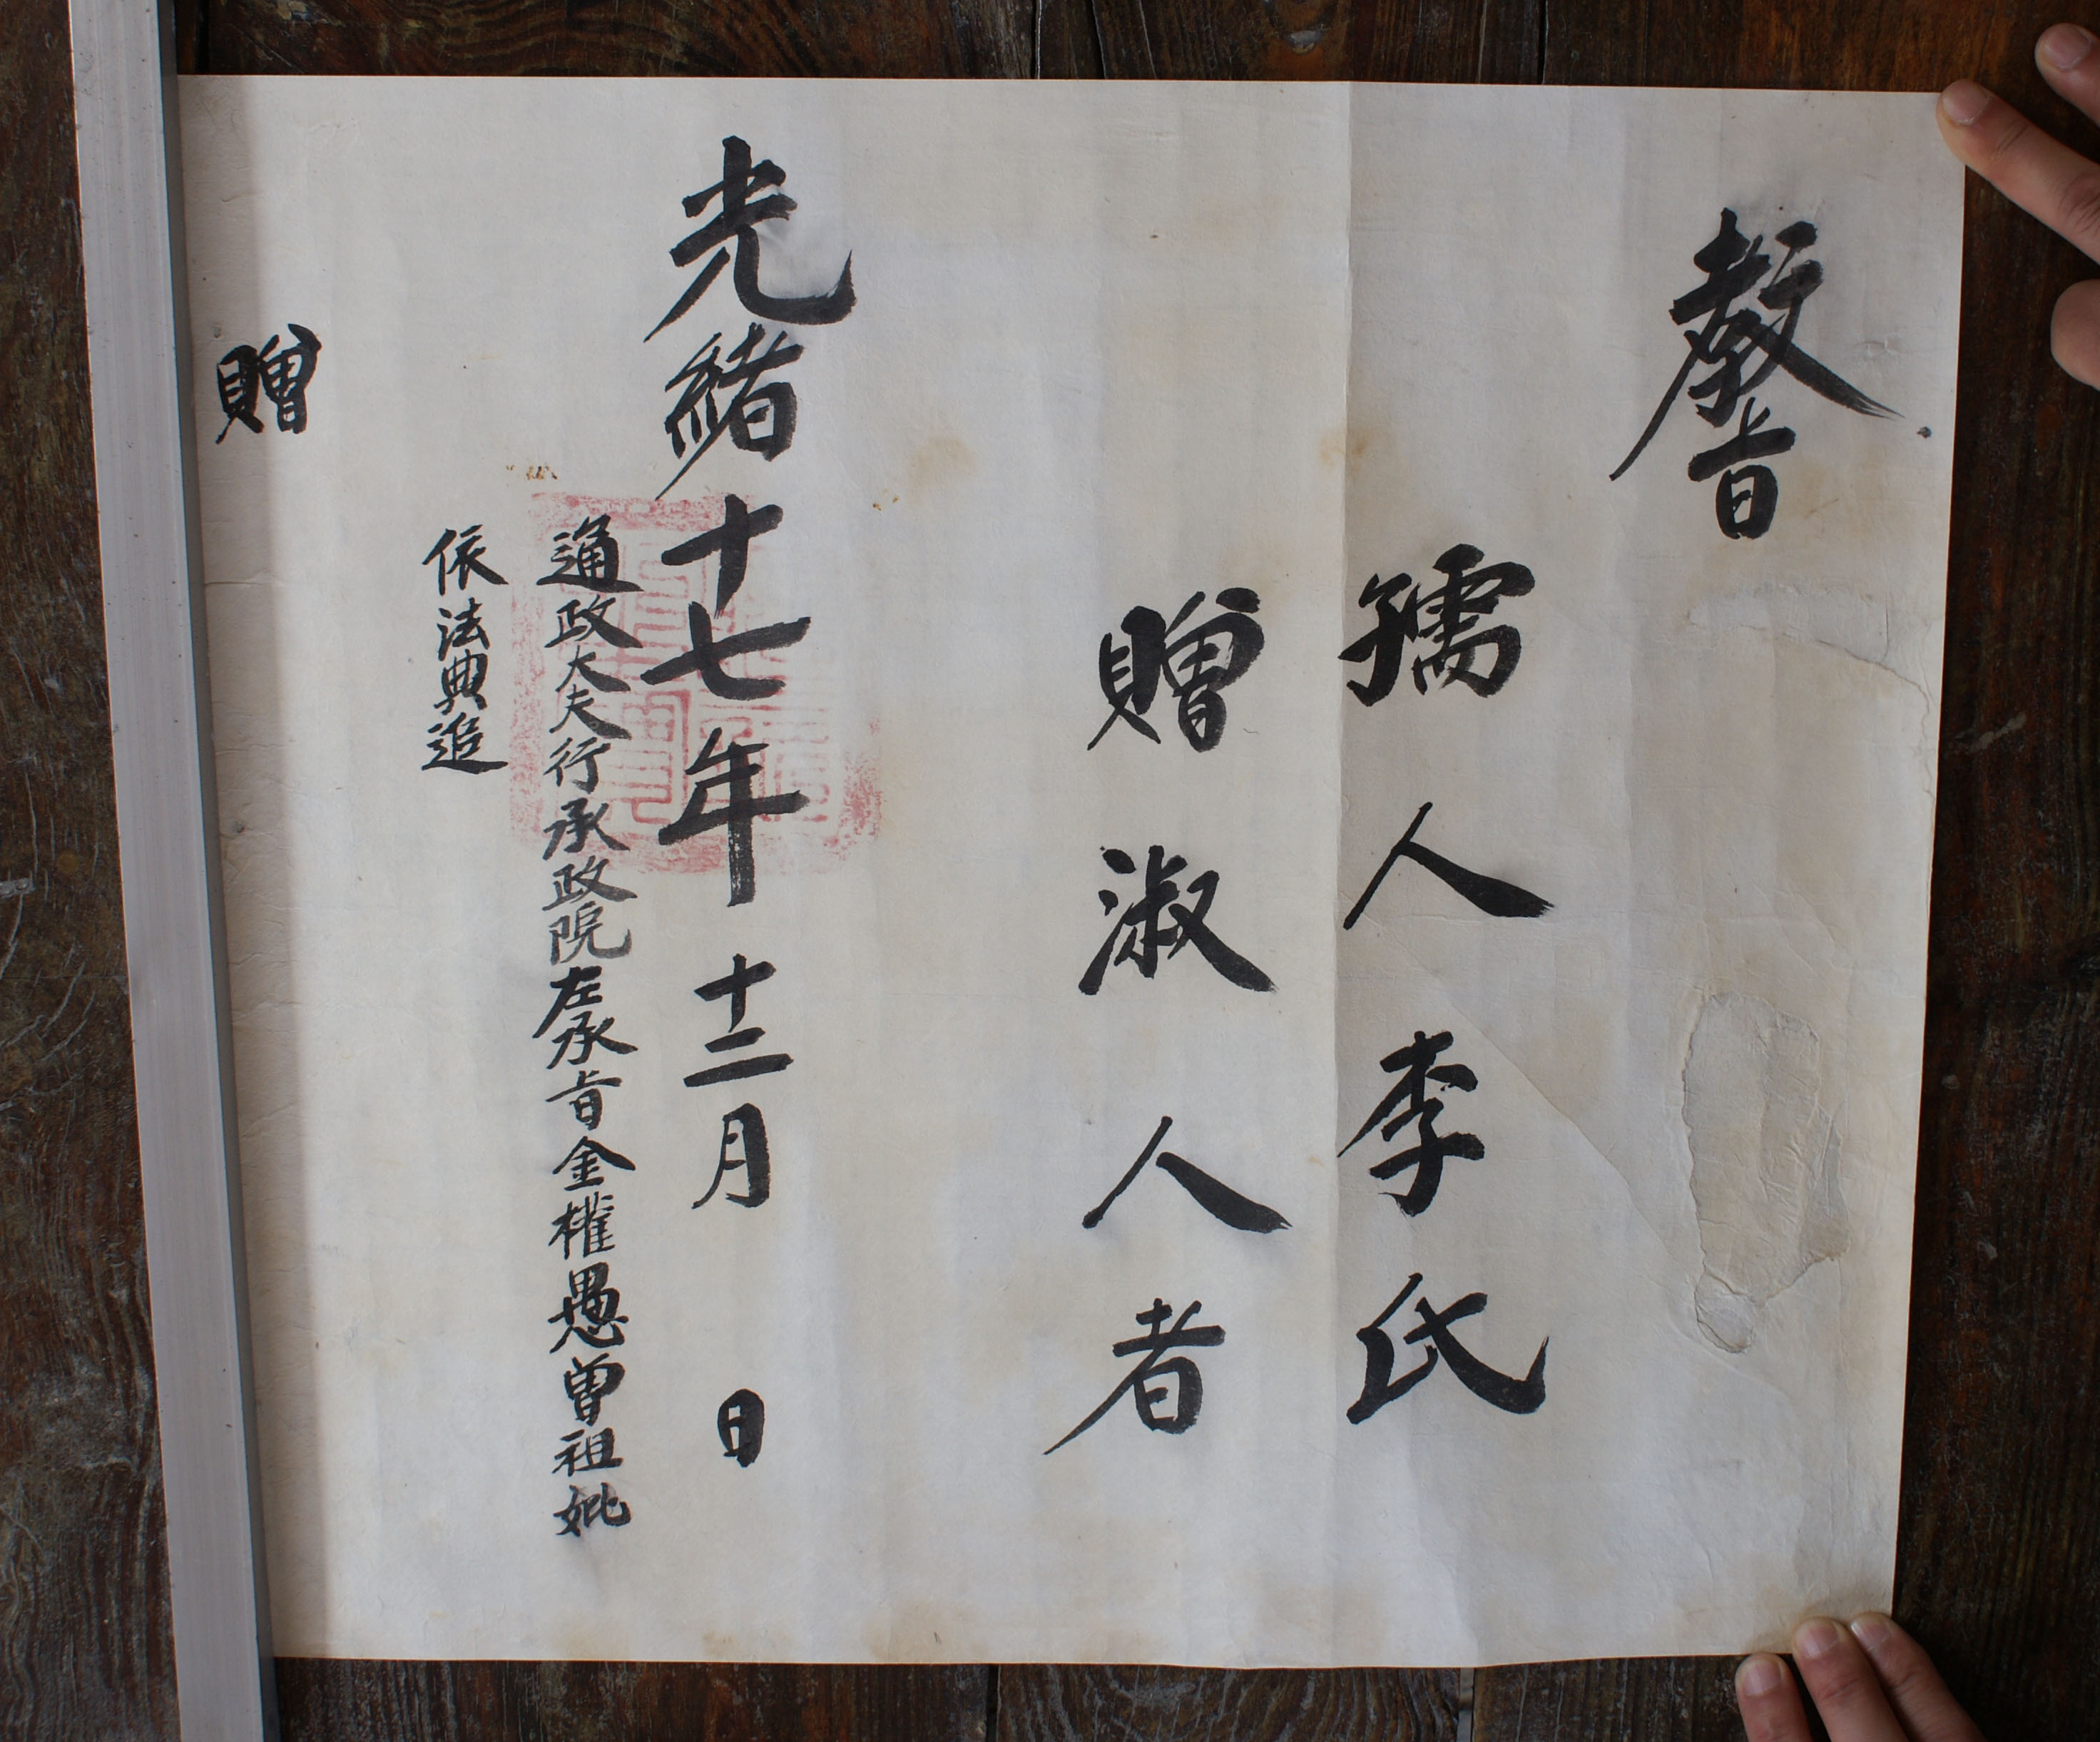 敎旨
孺人李氏
贈淑人者
光緖十七年十二月 日
通政大夫行承政院左承旨金權愚曾祖妣
依法典追
贈